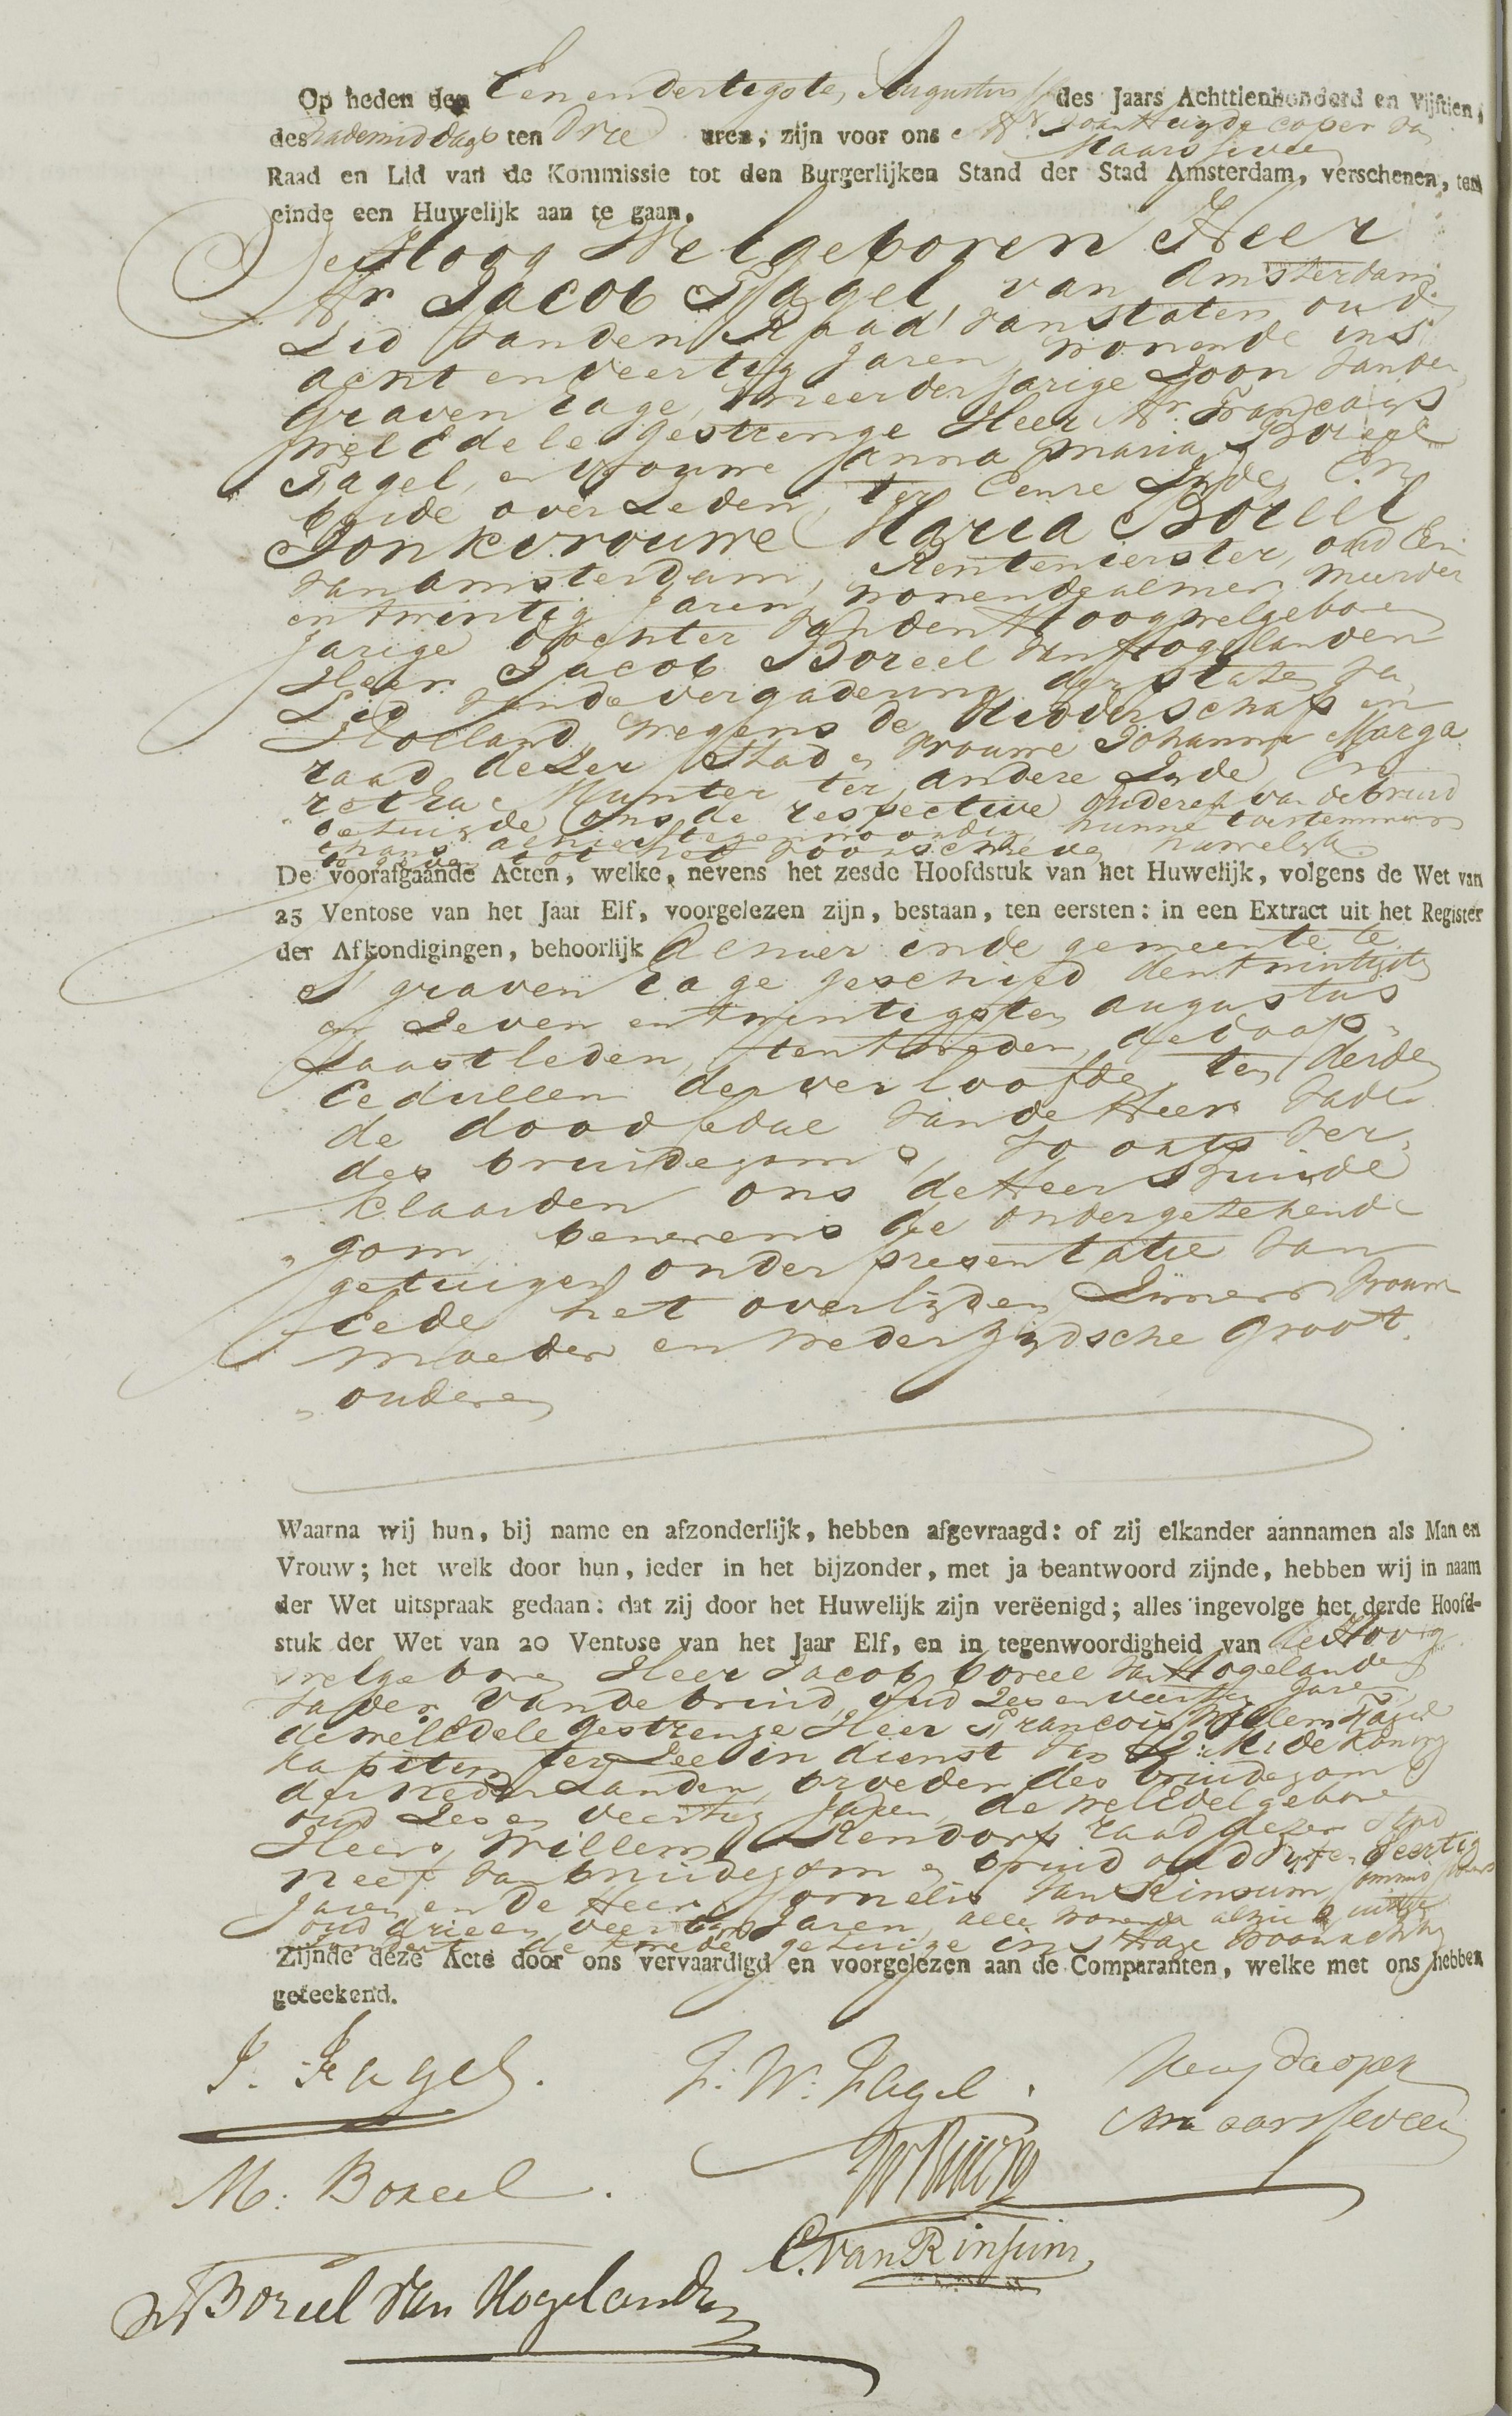 Op heden den Eenendertigsten Augustus des Jaars Achttienhonderd en Vijftien,
des nademiddags ten Drie uren, zijn voor ons Mr. Joan Huydecoper van
Maarsseveen
Raad en Lid van de Kommissie tot den Burgerlijken Stand der Stad Amsterdam, verschenen, ten
einde een Huwelijk aan te gaan,
De Hoog Welgeboren Heer
Mr Jacob Fagel, van Amsterdam
Lid van den Raad van staten oud
acht en veertig Jaren, wonende in s
Graven Hage, meerderjarige Zoon van den
WelEdele Gestrenge Heer Mr. Francois
Fagel, en vrouwe Anna Maria Boreel
beide overleden, ter Eenre Zyde, En
Jonkvrouwe Maria Boreel
van Amsterdam, Rentenierster, oud Een
en twintig Jaren, wonende alhier, meerder
jarige dochter van den Hoogwelgeboren
Heer Jacob Boreel van Hogelanden
Lid van de vergadering der staten van
Holland, wegens de Ridderschap en
raad dezer stad en vrouwe Johanna Marga
retha Munter ter andere Zyde, En
betuigde ons de respective ouderen van de bruid
thans alhier tegenwoordig, hunne toestemming
te geven tot het voorschreven huwelijk
De voorafgaande Acten, welke, nevens het zesde Hoofdstuk van het Huwelijk, volgens de Wet van
25 Ventose van het Jaar Elf, voorgelezen zijn, bestaan, ten eersten: in een Extract uit het Register
der Afkondigingen, behoorlijk alhier en de gemeente te
S graven Hage geschied den twintigste
en Zeven en twintigsten augustus
laastleden, ten tweeden, de doop
Cedullen der verloofde, ten derden
de dood Cedul van de Heer vader
des bruidegoms, zo als ver
klaarden ons de Heer Bruide
gom, benevens de ondergetekende
getuigen onder presentatie van
Eede het overlijden Zijner vrouw
moeder en wederzijdsche Groot
ouderen
Waarna wij hun, bij name en afzonderlijk, hebben afgevraagd: of zij elkander aannamen als Man en
Vrouw; het welk door hun, ieder in het bijzonder, met ja beantwoord zijnde, hebben wij in naam
der Wet uitspraak gedaan: dat zij door het Huwelijk zijn verëenigd; alles ingevolge het derde Hoofd-
stuk der Wet van 20 Ventose van het Jaar Elf, en in tegenwoordigheid van de Hoog
welgeboren Heer Jacob Boreel van Hogelanden
vader van de bruid, oud Zes en veertig Jaren
de welEdele Gestrenge Heer Francois Willem Fagel
kapitein ter Zee in dienst van Z: M: de Koning
der Nederlanden, broeder des bruidegoms
oud Zes en veertig Jaren, de welEdel geboren
Heer Willem Rendorp raad dezer stad
neef van bruidegom en bruid oud Vyf en veertig
Jaren, en de Heer Cornelis van Rinsum
oud drie en veertig Jaren, alle wonende alhier uitge
zondert de tweede getuige in s Hage woonachtig
Zijnde deze Acte door ons vervaardigd en voorgelezen aan de Comparanten, welke met ons hebben
geteekend.
J. Fagel.
F: W: Fagel.
Huydecoper
Maarsseveen
M: Boreel.
C. van Rinsum
J Boreel van Hogelanden